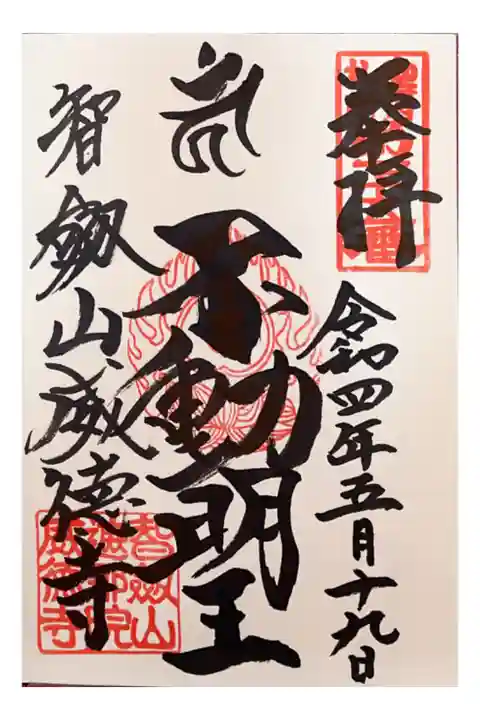 奉拝
令和四年五月十九日
不動明王
智劔山威徳寺